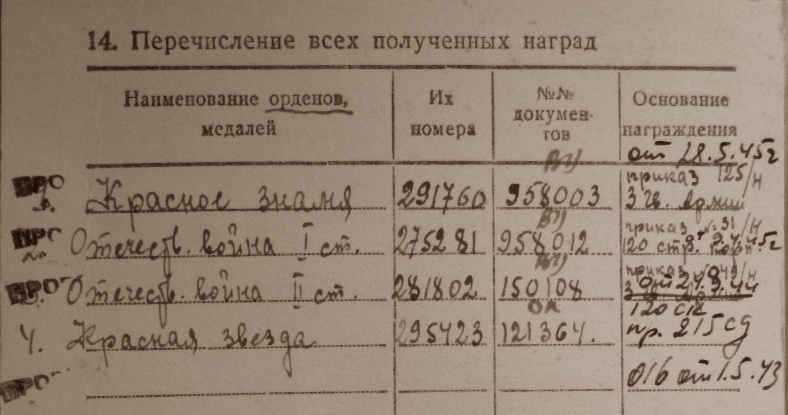 14. Перечисление всех полученных наград
Наименование орденов, медалей
Их номера
№№ докумен-тов
Основание награждения
от 28.5.45г
Красное знамя 291760 958003 приказ 125/н 3 гв. армии
Отечеств. война I ст. 275281 958012 приказ №31/н 120 стр. корп.
Отечеств. война II ст. 281802 150108 приказ
120 ск
4. Красная звезда 295423 121364. пр. 215 сд
016 от 1.5.43